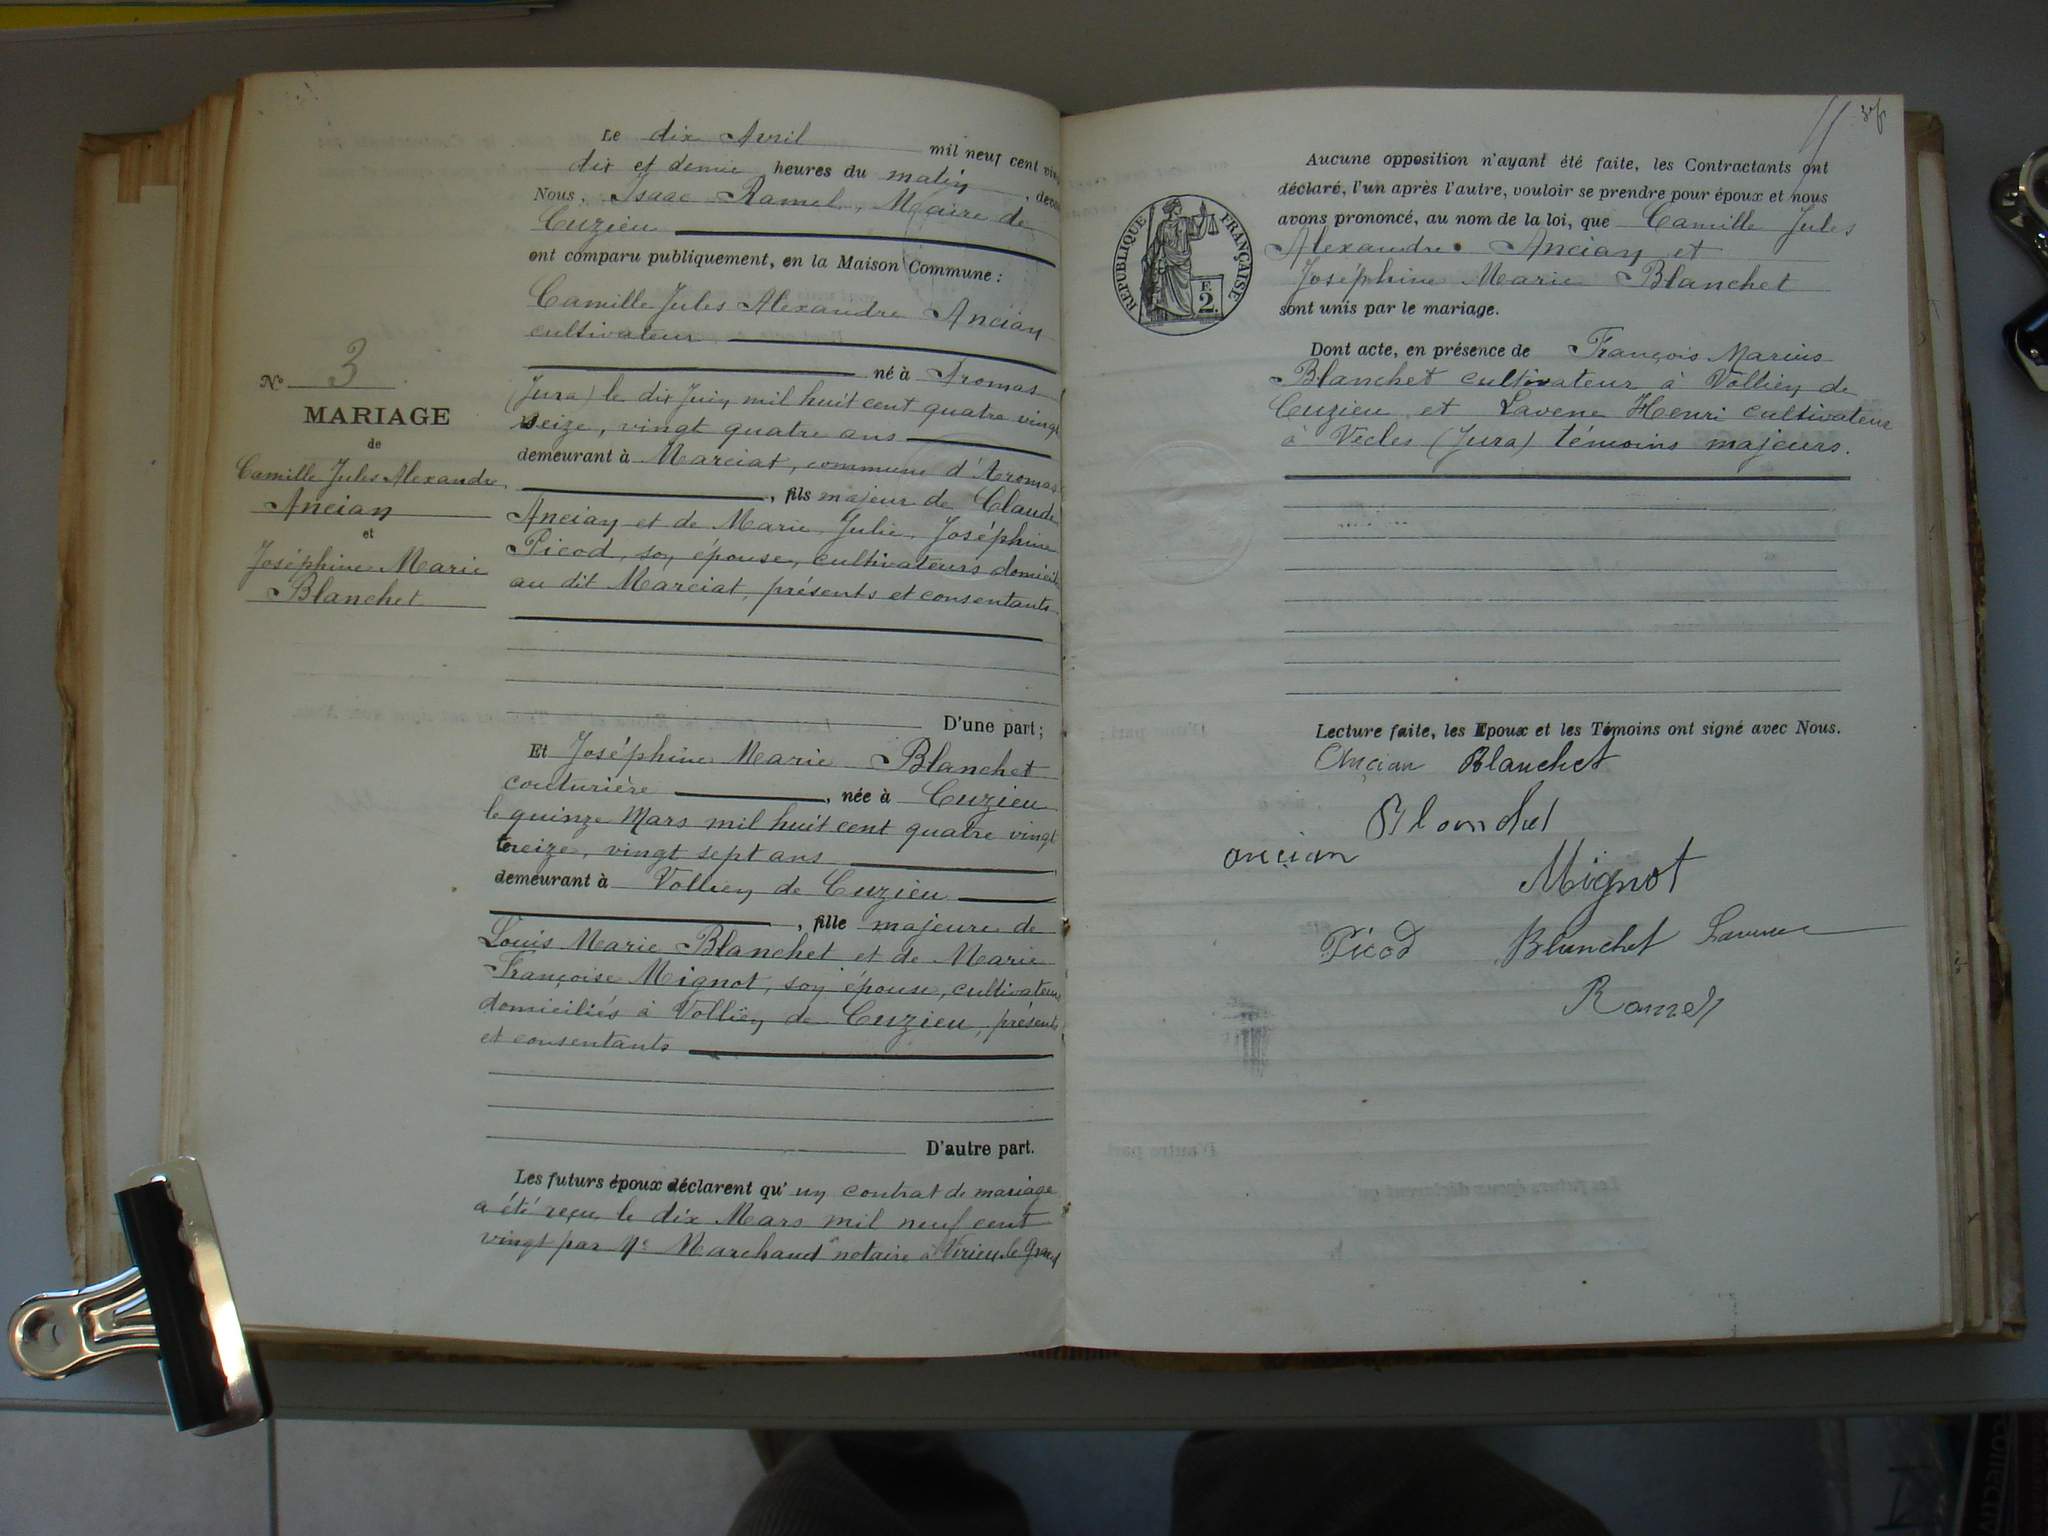 Le dix Avril mil neuf cent vin
dix et demie heures du matin, deva
Nous, Isaac Ramel, Maire de
Cuzieu
ont comparu publiquement, en la Maison Commune :
Camille Jules Alexandre Ancian
cultivateur
né à Aromas
(Jura) le dix Juin mil huit cent quatre vingt
seize, vingt quatre ans
demeurant à Marciat, commune d'Aromas
, fils majeur de Claude
Ancian et de Marie Julie Joséphine
Picod, son épouse, cultivateurs domicili
au dit Marciat, présents et consentants.
D'une part ;
Nº 3
MARIAGE
de
Camille Jules Alexandre
Ancian
et
Joséphine Marie
Blanchet
Et Joséphine Marie Blanchet
couturière, née à Cuzieu
le quinze Mars mil huit cent quatre vingt
treize, vingt sept ans
demeurant à Vollien de Cuzieu
, fille majeure de
Louis Marie Blanchet et de Marie
Françoise Mignot, son épouse, cultivateurs
domiciliés à Vollien de Cuzieu, présents
et consentants
D'autre part.
Les futurs époux déclarent qu'un contrat de mariage
a été reçu le dix Mars mil neuf cent
vingt par Me Marchand notaire à Virieu le Grand
Aucune opposition n'ayant été faite, les Contractants ont
déclaré, l'un après l'autre, vouloir se prendre pour époux et nous
avons prononcé, au nom de la loi, que Camille Jules
Alexandre Ancian et
Joséphine Marie Blanchet
sont unis par le mariage.
RÉPUBLIQUE FRANÇAISE
F.
2.
Dont acte, en présence de François Marius
Blanchet cultivateur à Vollien de
Cuzieu et Lavenne Henri cultivateur
à Vécles (Jura) témoins majeurs.
Lecture faite, les Epoux et les Témoins ont signé avec Nous.
Ancian Blanchet
Blanchet
ancian
Mignot
Picod Blanchet Lavenne
Ramel